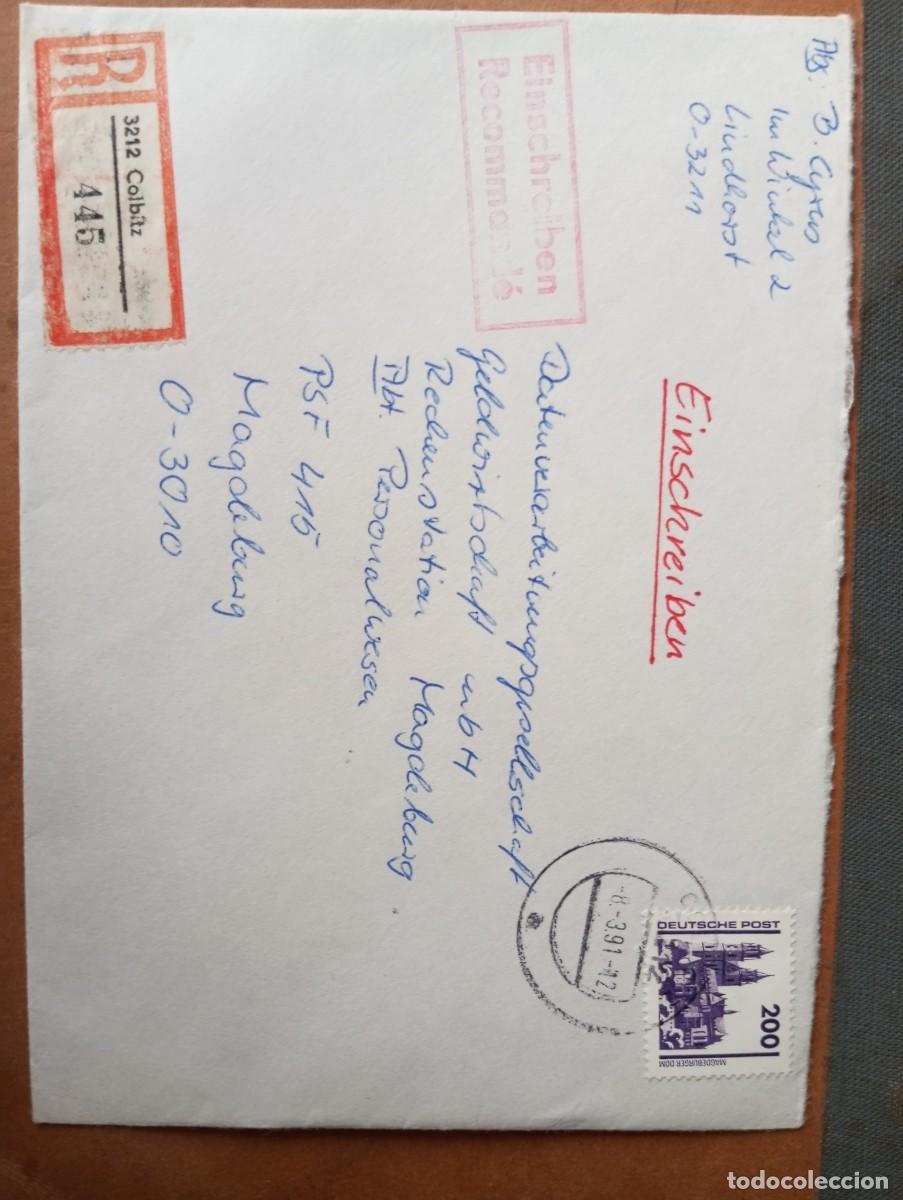 Abs. B. Cyrus
Im Winkel 2
Lindhorst
O-3211
Einschreiben
Einschreiben
Recommandé
Datenverarbeitungsgesellschaft
Geldwirtschaft mbH
Rechenstation Magdeburg
Abt. Personalwesen
PSF 415
Magdeburg
O-3010
R
3212 Colbitz
445
-8.-3.91-12
DEUTSCHE POST
200
MAGDEBURGER DOM
todocoleccion